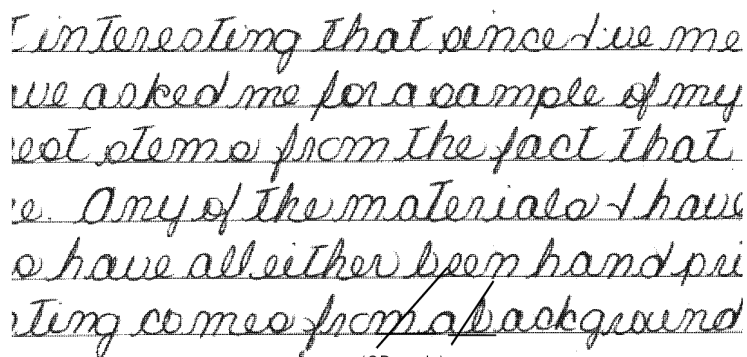 t interesting that since I've me
ve asked me for a sample of my
rest stems from the fact that
e. Any of the materials I have
s have all either been hand pri
ting comes from a background